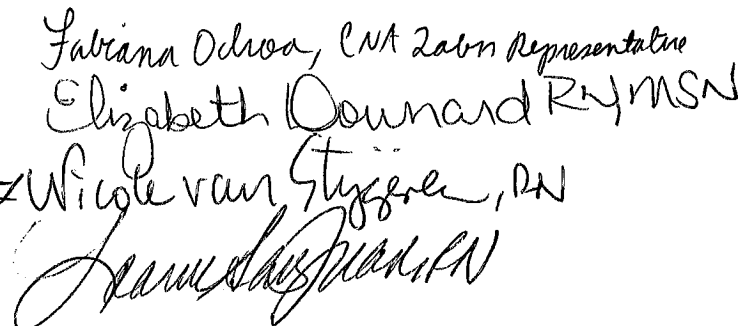 Fabiana Ochoa, CNA Labor Representative
Elizabeth Downard RN, MSN
Nicole van Stijgeren, RN
San Juan, RN